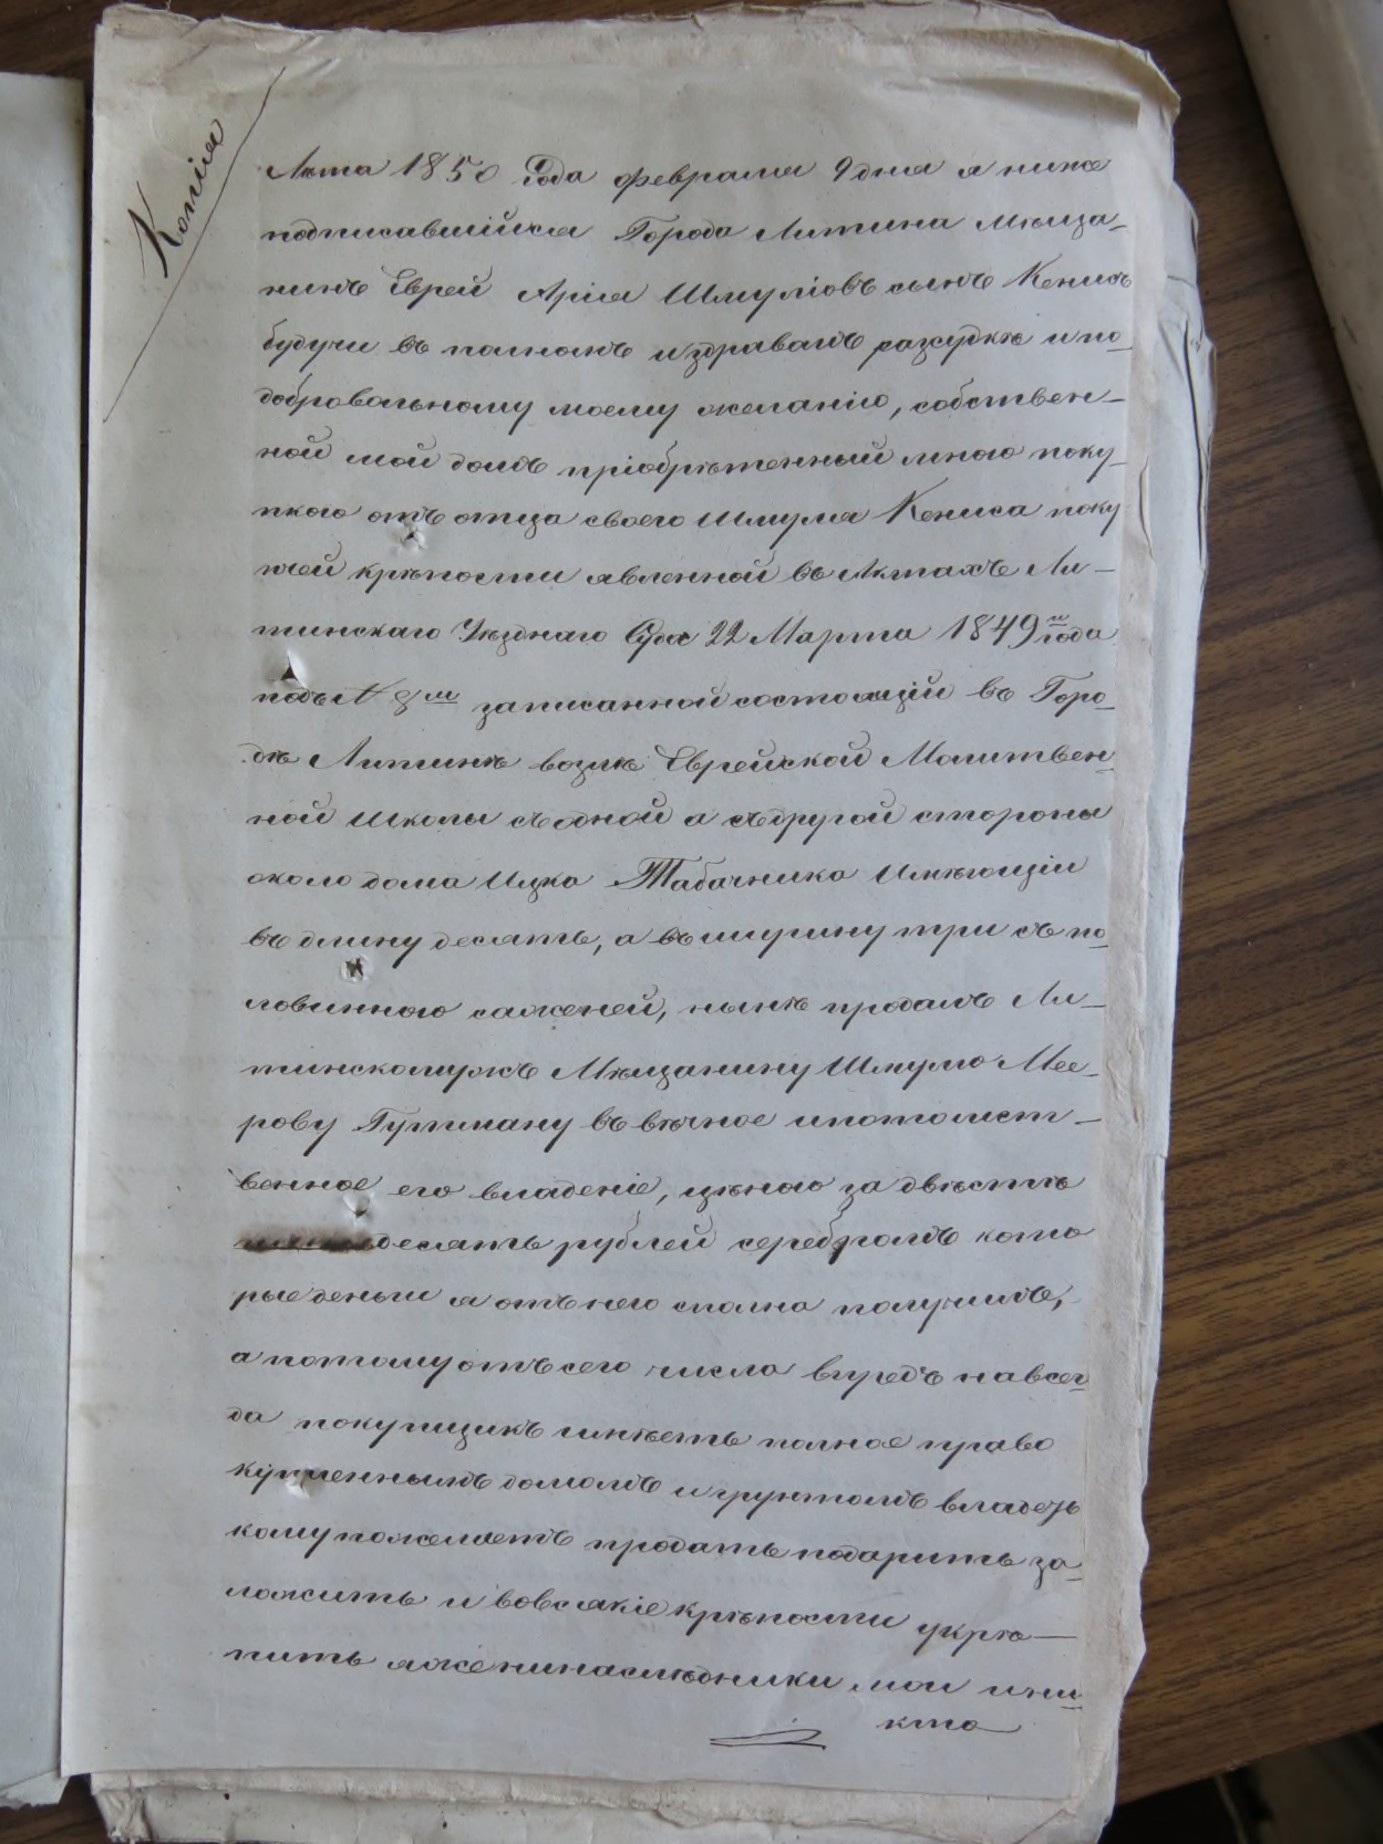 Копія
Лѣта 1850 Года февраля 9 дня я ниже
подписавшійся Города Литина Мѣща-
нинъ Еврей Арія Шмуліовъ сынъ Кенисъ
будучи въ полномъ и здравомъ разсудкѣ и по
добровольному моему желанію, собствен-
ной мой домъ пріобрѣтенный мною поку-
пкою отъ отца своего Шмуля Кениса поку
пчей крѣпости явленной въ Актахъ Ли-
тинскаго Уѣзднаго Суда 22 Марта 1849го года
подъ N 8м записанной состоящій въ Горо-
дѣ Литинѣ возлѣ Еврейской Молитвен-
ной Школы съ одной а съ другой стороны
около дома Ицка Табачника Имѣющій
въ длину десять, а въ ширину три съ по-
ловинною саженей, нынѣ продалъ Ли-
тинскомужъ Мѣщанину Шмулю Мее-
рову Гутману въ вѣчное и потомст-
венное его владеніе, цѣною за двѣстѣ
десять рублей серебромъ кото
рые деньги я отъ него сполна получилъ,
а потому отъ сего числа впредъ на всег-
да покупщикъ имѣетъ полное право
купленнымъ домомъ и грунтомъ владеть
кому пожелаетъ продать подарить за-
ложить и вовсякіе крѣпости укрѣ-
пить яже нинаслѣдники мои и ни-
кто